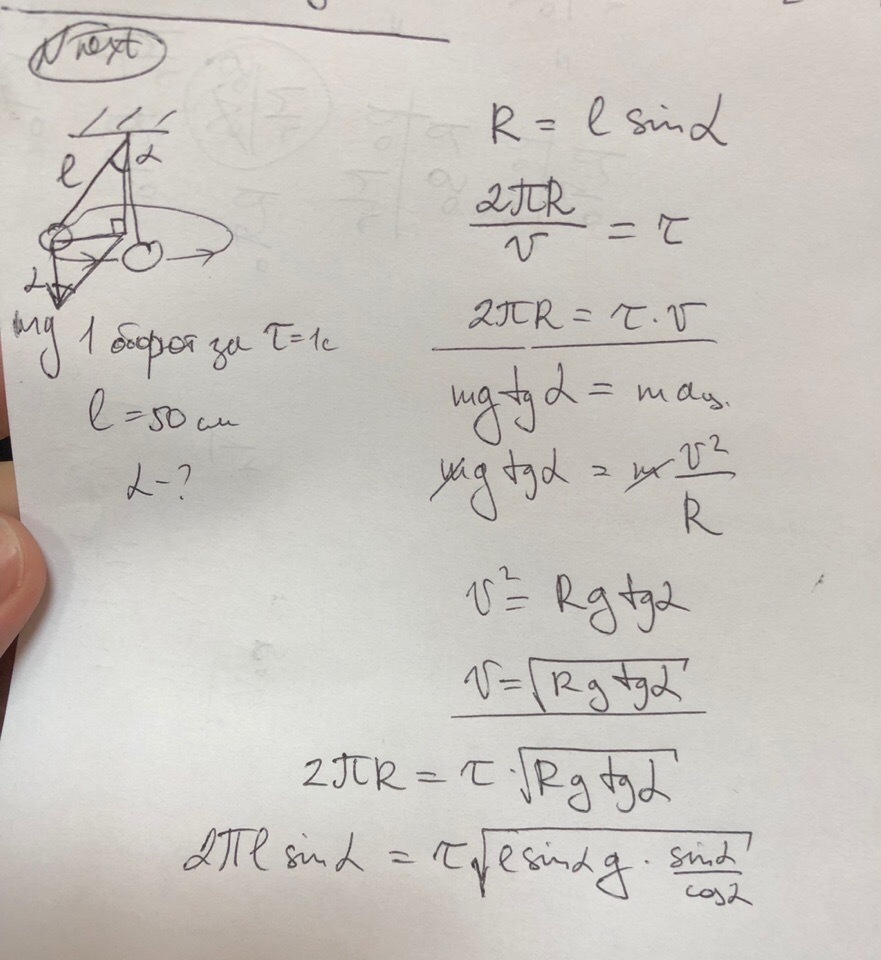 N next
l α
α
mg
1 оборот за τ=1с
l = 50 см
α - ?
R = l sinα
2πR / v = τ
2πR = τ · v
mg tgα = m aц.
mg tgα = m v² / R
v² = Rg tgα
v = √(Rg tgα)
2πR = τ · √(Rg tgα)
2πl sinα = τ √(l sinα g · sinα / cosα)